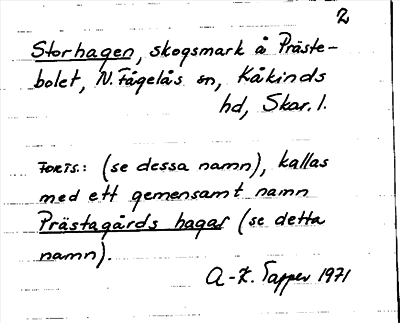 2
Storhagen, skogsmark å Präste-
bolet, N. Fågelås sn, Kåkinds
hd, Skar. l.
Forts.: (se dessa namn), kallas
med ett gemensamt namn
Prästagårds hagar (se detta
namn).
A-K. Tapper 1971